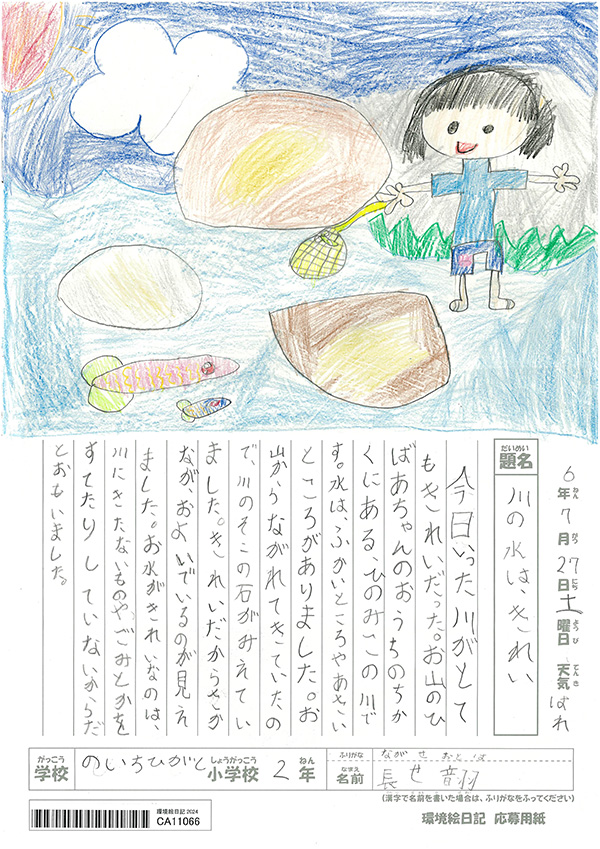 6年7月27日土曜日 天気 はれ
ねん がつ にち ようび てんき
だいめい
題名
川の水は、きれい
今日いった川がとて
もきれいだった。お山のひ
ばあちゃんのおうちのちか
くにある、ひのみこの川で
す。水は、ふかいところやあさい
ところがありました。お
山からながれてきていたの
で、川のそこの石がみえてい
ました。きれいだからさか
なが、およいでいるのが見え
ました。お水がきれいなのは、
川にきたないものや、ごみとかを
すてたりしていないからだ
とおもいました。
がっこう しょうがっこう ねん
学校 のいちひがし 小学校 2年
ふりがな ながせ おとは
なまえ
名前 長せ 音羽
(漢字で名前を書いた場合は、ふりがなをふってください)
環境絵日記 2024
CA11066
環境絵日記 応募用紙